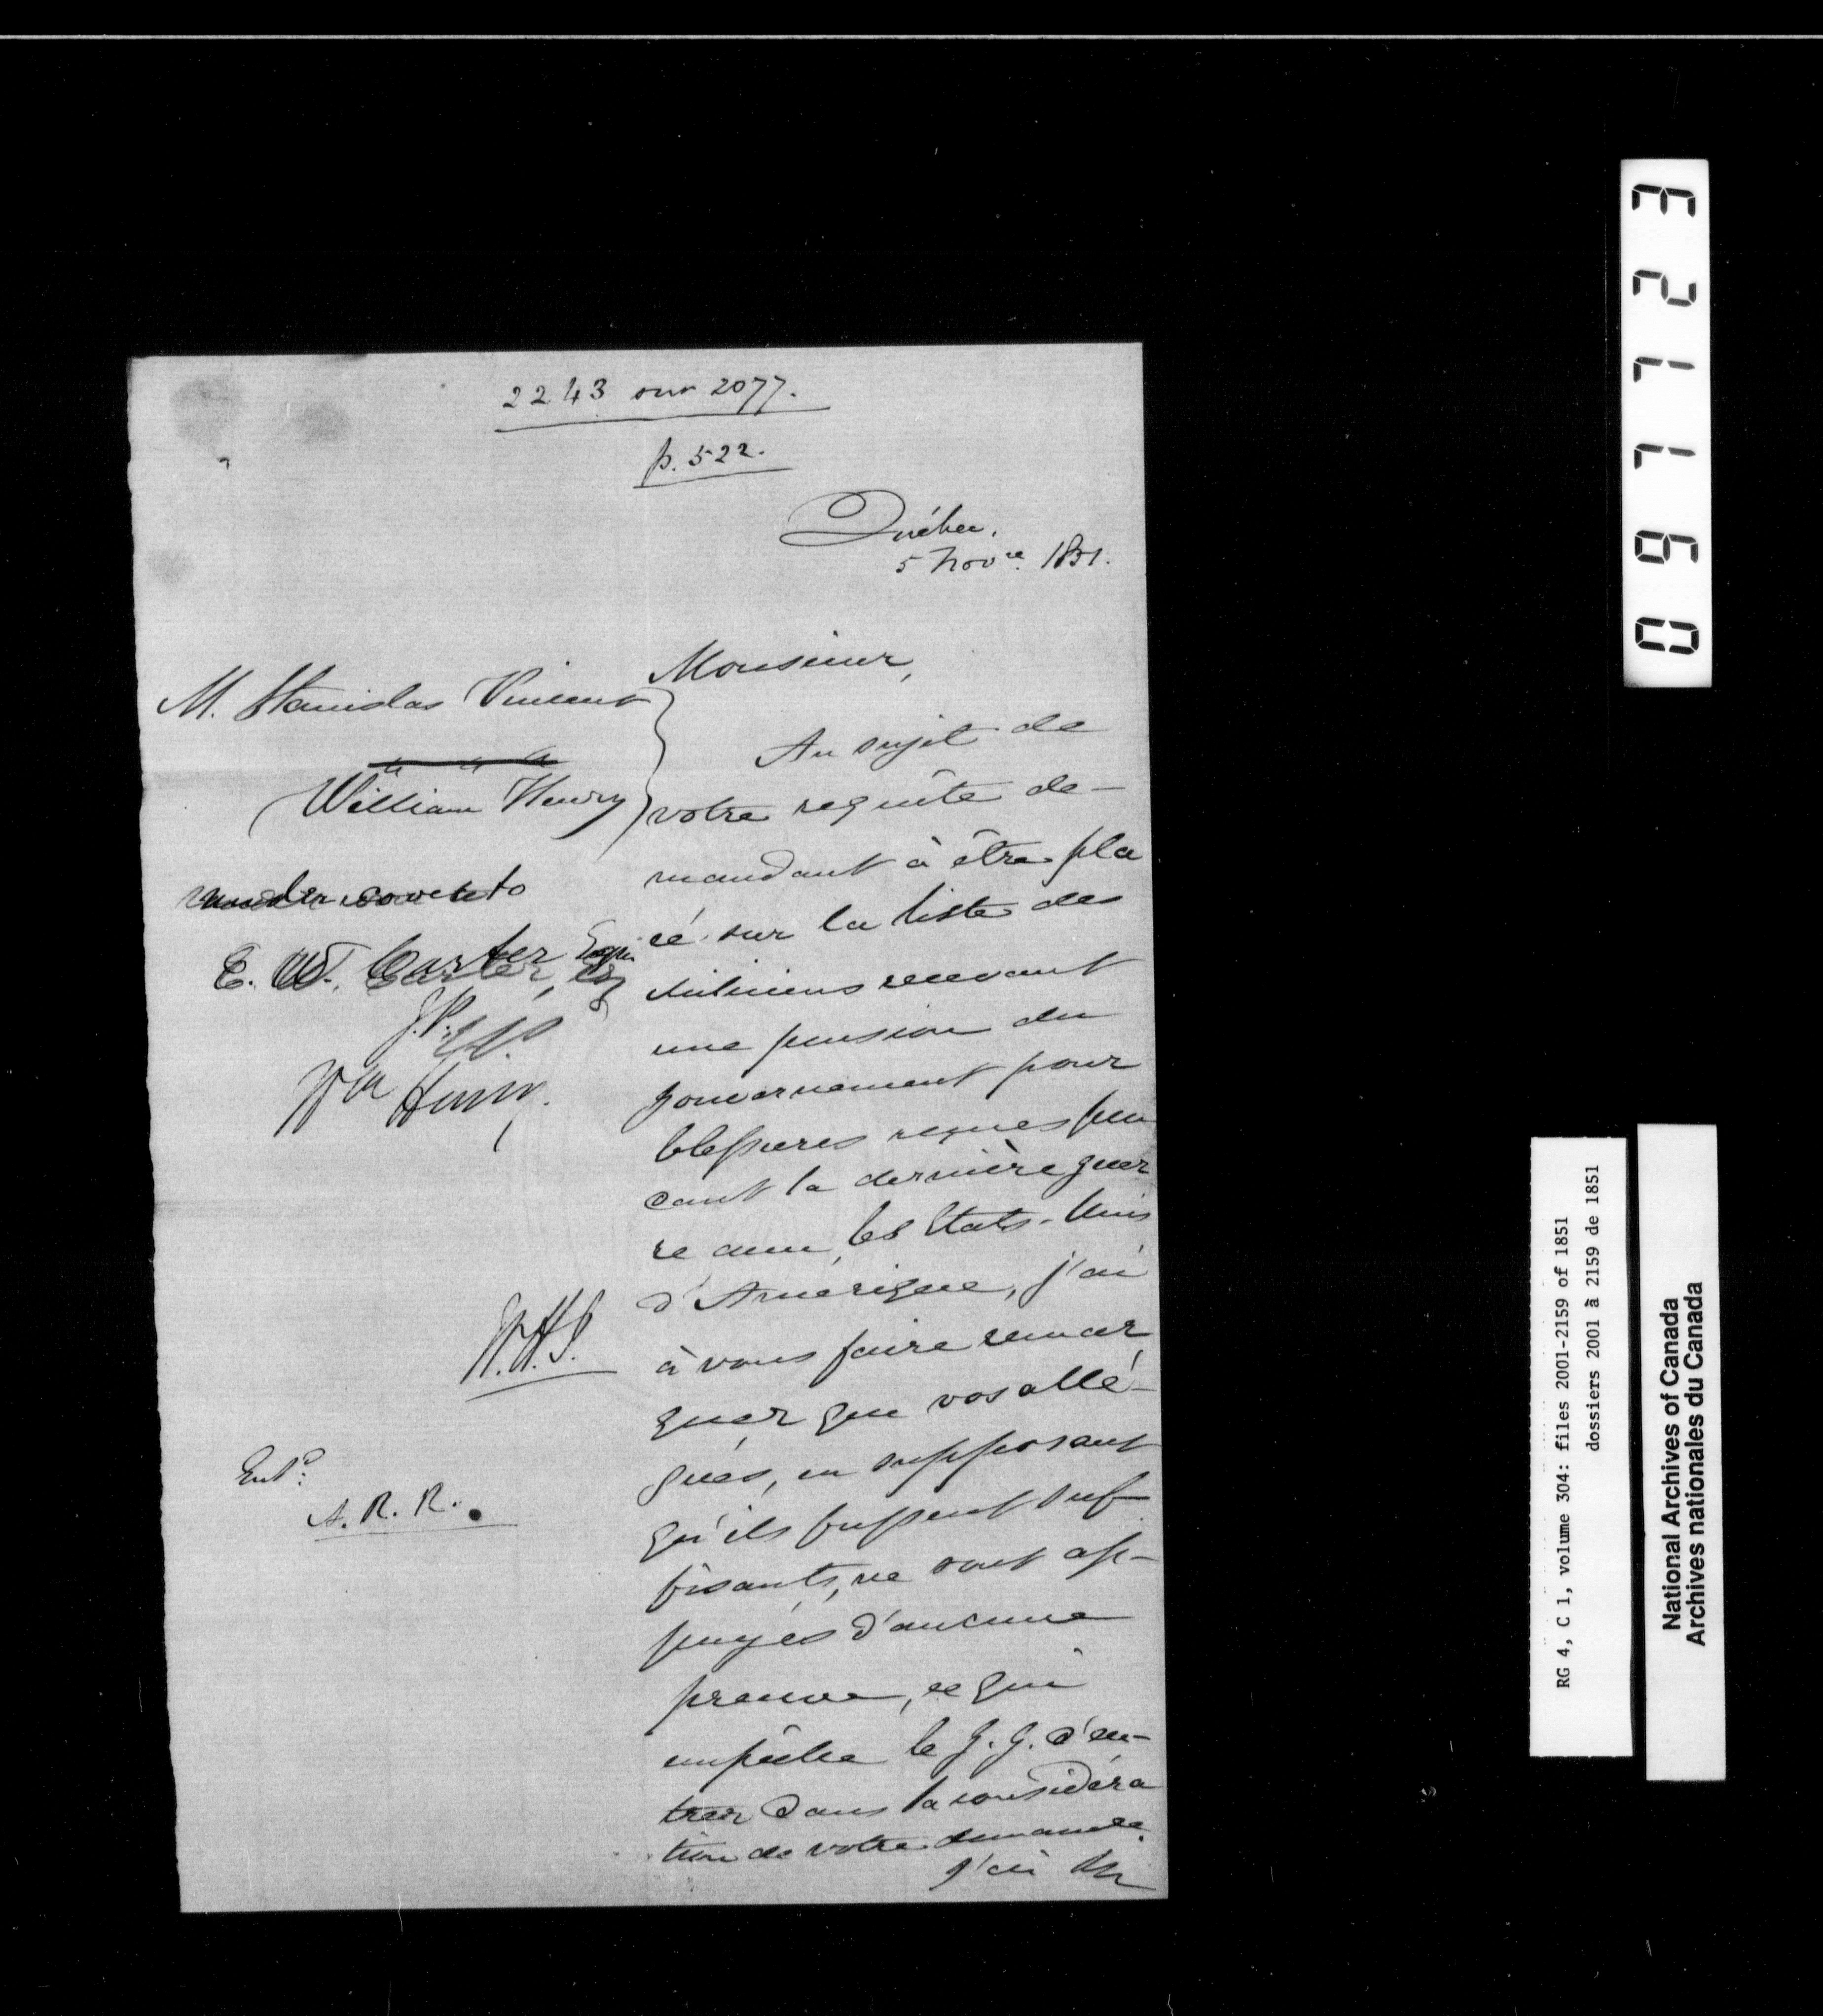 2243 sur 2077.
p. 522.
Québec,
5 Novre. 1851.
M. Stanislas Vincent
William Henry
under cover to
E. W. Carter, Esqr
J.P.
Wm Henry.
W.H.J.
Entd.
A. R. R.
Monsieur,
Au sujet de
votre requête de-
mandant à être pla
cé sur la liste des
miliciens recevant
une pension du
gouvernement pour
blessures reçues pen
dant la dernière guer
re avec les Etats-Unis
d'Amérique, j'ai
à vous faire remar
quer que vos allé-
gués, en supposant
qu'ils fussent suf
fisants, ne sont ap-
puyés d'aucune
preuve, ce qui
empêche le G. G. d'en-
trer dans la considéra
tion de votre demande.
J'ai
097723
RG 4, C 1, volume 304: files 2001-2159 of 1851
dossiers 2001 à 2159 de 1851
National Archives of Canada
Archives nationales du Canada